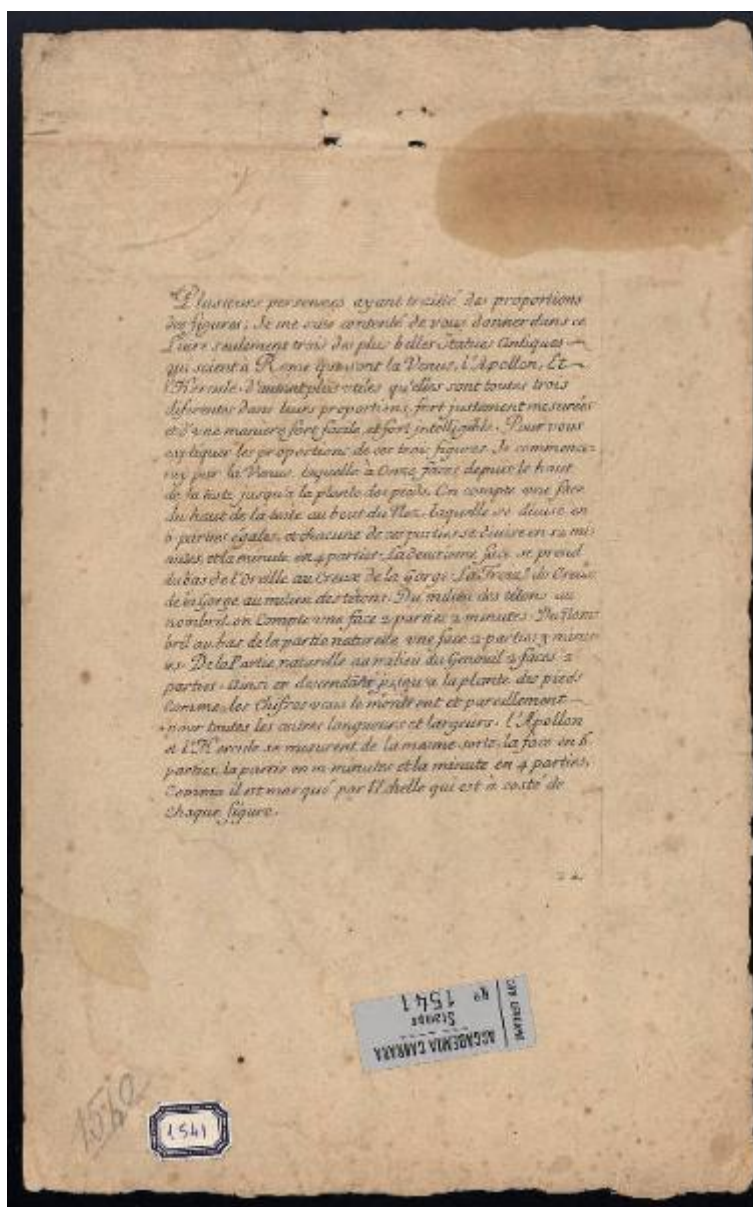 Plusieurs personnes ayant traitté des proportions
des figures, Je me suis contenté de vous donner dans ce
Livre seulement trois des plus belles Statues Antiques
qui soient à Rome qui sont la Venus, l'Apollon, Et
l'Hercule. D'autant plus utiles qu'elles sont toutes trois
diferentes dans leurs proportions, fort justement mesurées
et d'une maniere fort facile, et fort intelligible. Pour vous
expliquer les proportions de ces trois figures Je commence-
ray par la Venus, laquelle à Onze faces depuis le haut
de la teste jusqu'a la plante des pieds. On compte une face
du haut de la teste au bout du Nez, laquelle se divise en
6 parties égales, et chacune de ces parties se divise en 12 mi-
nutes, et la minute en 4 parties. La deuxieme face se prend
du bas de l'Oreille au Creux de la Gorge. La Trois.e du Creux
de la Gorge au milieu des tétons. Du milieu des tétons au
nombril, on Compte une face 2 parties 2 minutes. Du Nom-
bril au bas de la partie naturelle une face 2 parties 3 minu-
tes. De la Partie naturelle au milieu du Genouil 2 faces 2
parties. Ainsi en descendant jusqu'a la plante des pieds
Comme les Chifres vous le montrent et pareillement
pour toutes les autres longueurs et largeurs. l'Apollon
et l'Hercule se mesurent de la mesme sorte, la face en 6
parties, la partie en 12 minutes et la minute en 4 parties,
Comme il est marqué par l'Echelle qui est à costé de
chaque figure.
ACCADEMIA CARRARA
Stampe
N° 1541
1540
1541